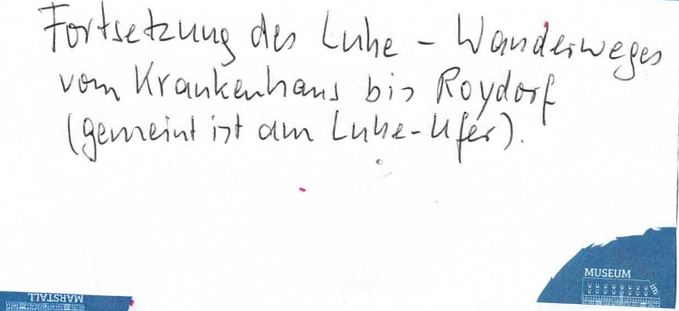 Fortsetzung des Luhe - Wanderweges
vom Krankenhaus bis Roydorf
(gemeint ist am Luhe-Ufer).
MUSEUM
MARSTALL